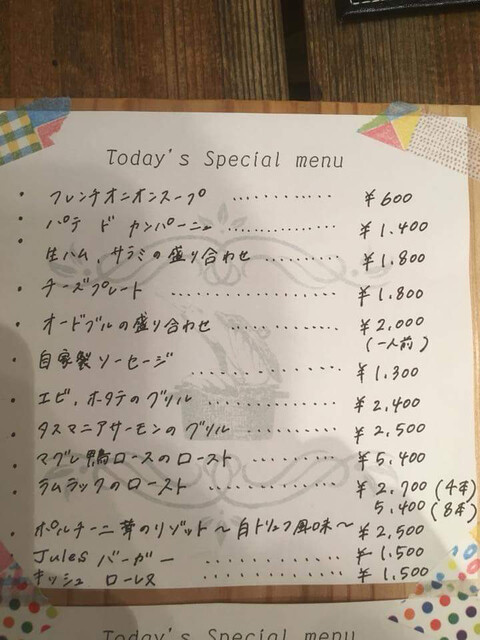 Today's Special menu
・ フレンチオニオンスープ ............ ¥600
・ パテ ド カンパーニュ ............ ¥1.400
・ 生ハム、サラミの盛り合わせ .......... ¥1.800
・ チーズプレート .................. ¥1.800
・ オードブルの盛り合わせ ............ ¥2.000
(一人前)
・ 自家製ソーセージ ................ ¥1.300
・ エビ、ホタテのグリル .............. ¥2.400
・ タスマニアサーモンのグリル .......... ¥2.500
・ マグレ鴨ロースのロースト ............ ¥5.400
・ ラムラックのロースト .............. ¥2.700 (4本)
5.400 (8本)
・ ポルチーニ茸のリゾット〜白トリュフ風味〜 ¥2.500
Jules バーガー ............ ¥1.500
キッシュ ローレヌ ............ ¥1.500
Today's Special menu